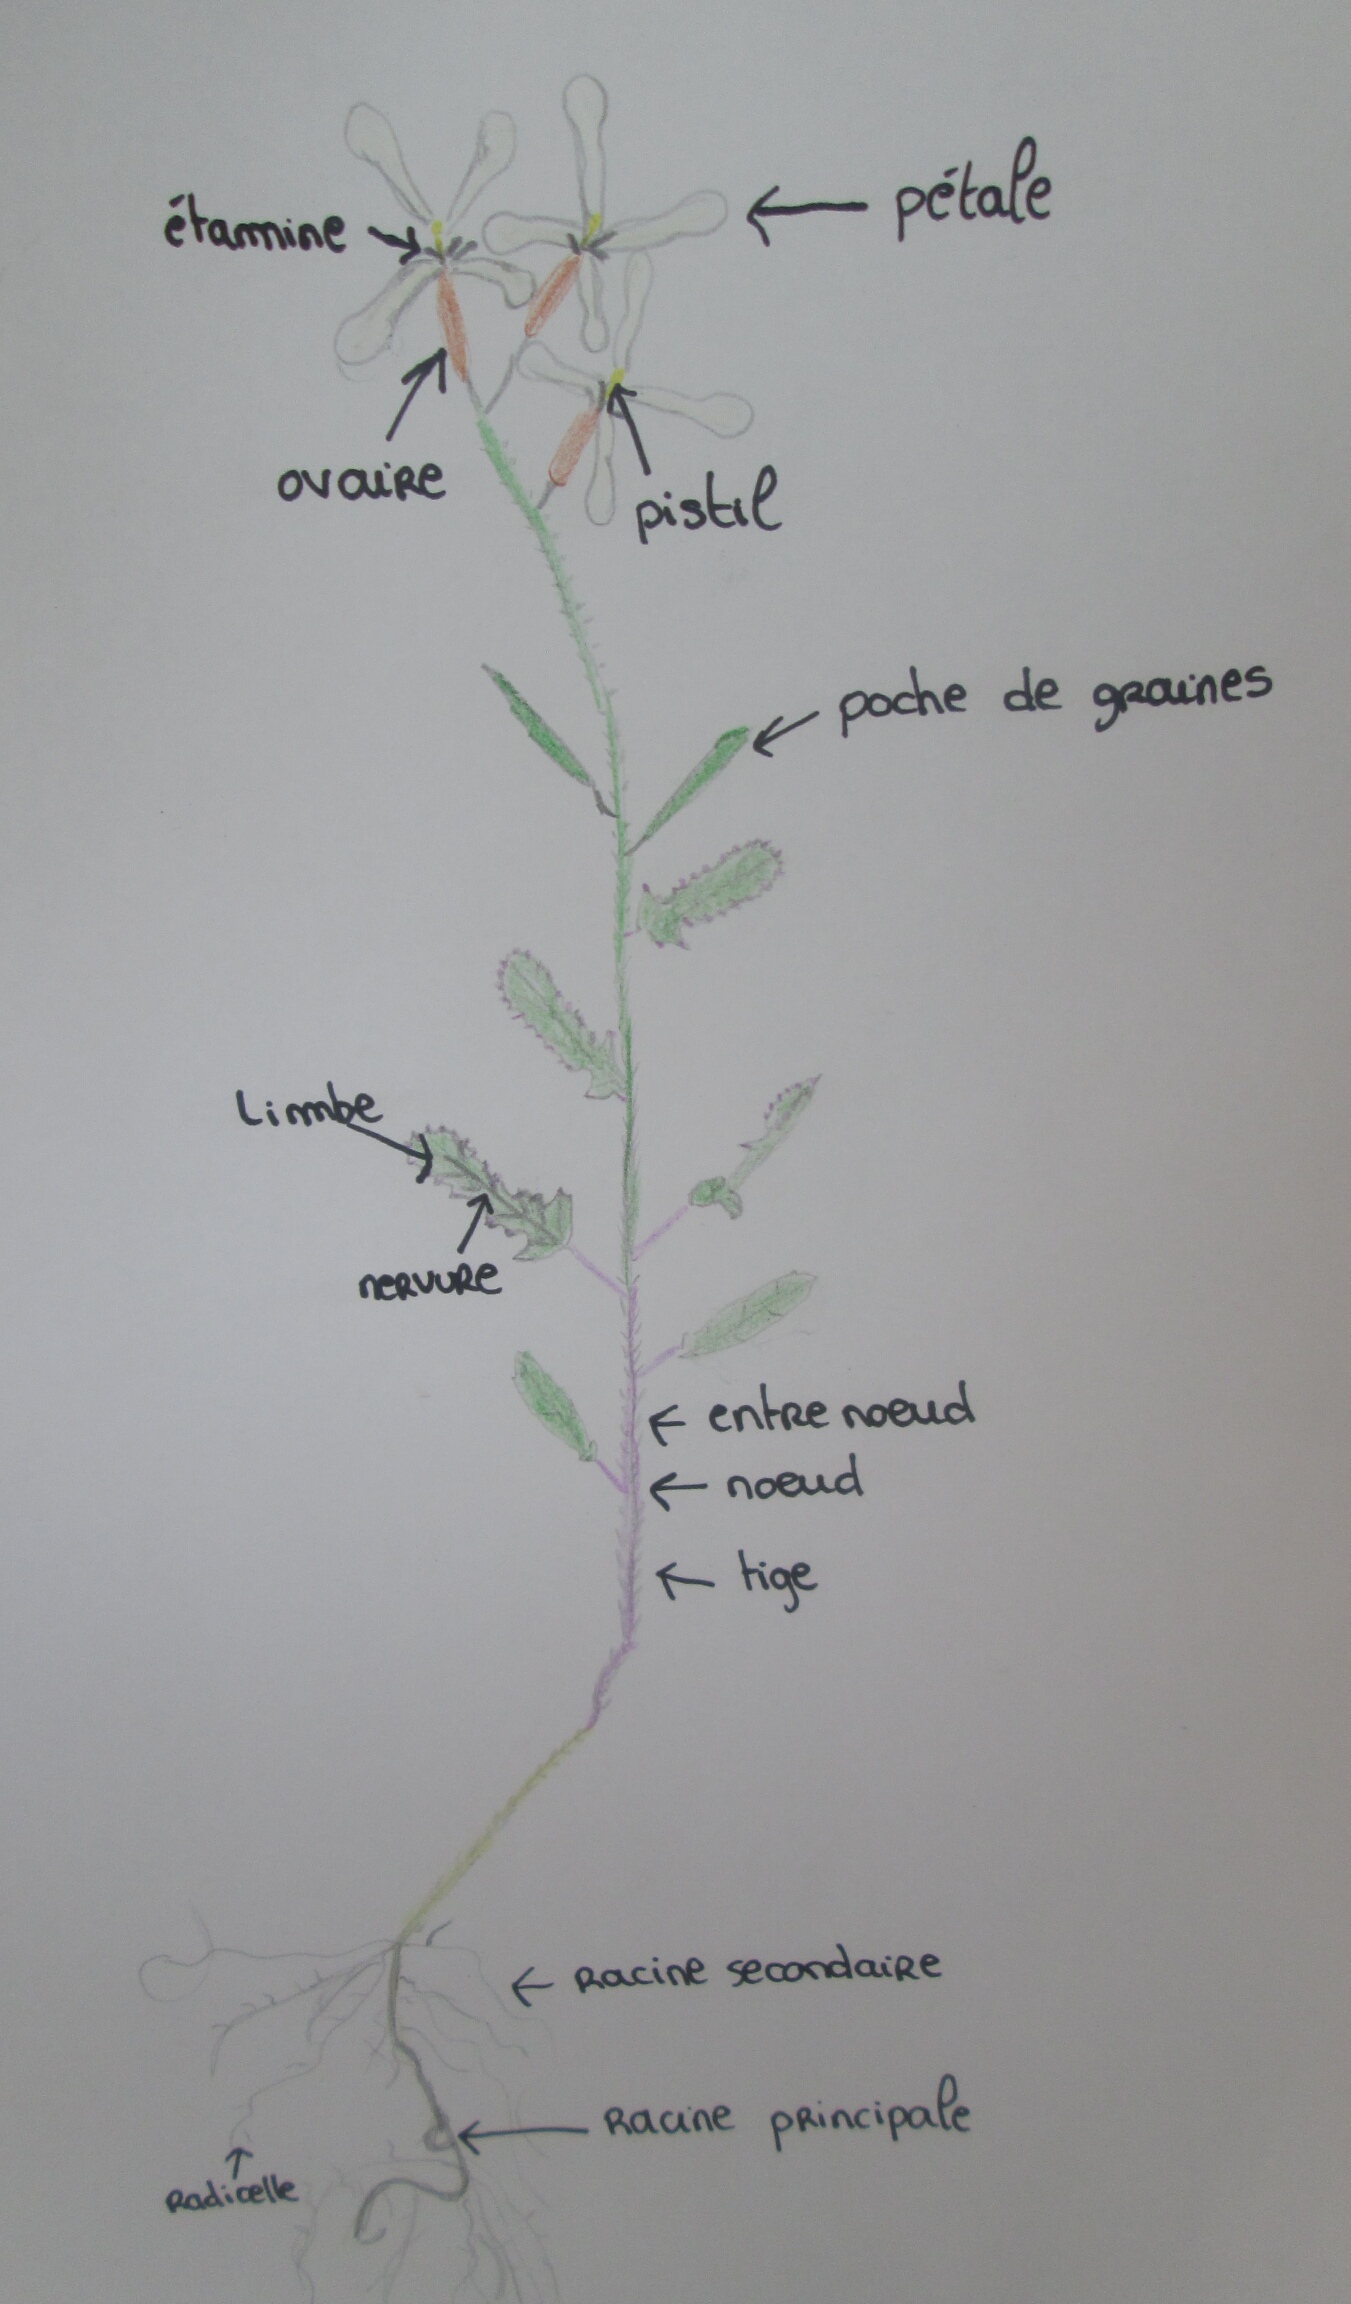 pétale
étamine
ovaire
pistil
poche de graines
Limbe
nervure
entre noeud
noeud
tige
Racine secondaire
Racine principale
Radicelle